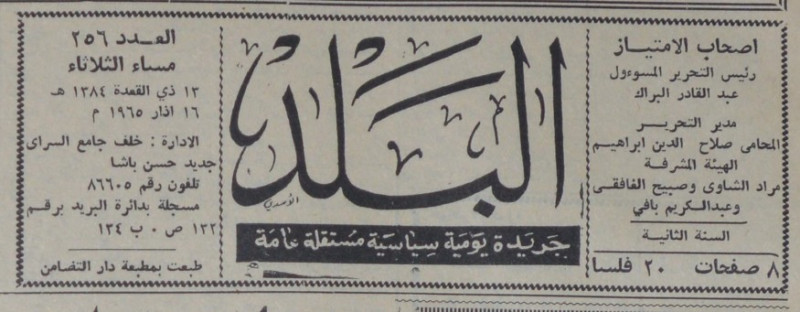 اصحاب الامتياز
رئيس التحرير المسوءول
عبد القادر البراك
مدير التحرير
المحامي صلاح الدين ابراهيم
الهيئة المشرفة
مراد الشاوى وصبيح الغافقي
وعبدالكريم بافي
السنة الثانية
٨ صفحات ٢٠ فلسا
البلد
الأسدي
جريدة يومية سياسية مستقلة عامة
العدد ٢٥٦
مساء الثلاثاء
١٣ ذي القعدة ١٣٨٤ هـ
١٦ اذار ١٩٦٥ م
الادارة : خلف جامع السراى
جديد حسن باشا
تلفون رقم ٨٦٦٠٥
مسجلة بدائرة البريد برقم
١٣٢ ص ٠ ب ١٣٤
طبعت بمطبعة دار التضامن